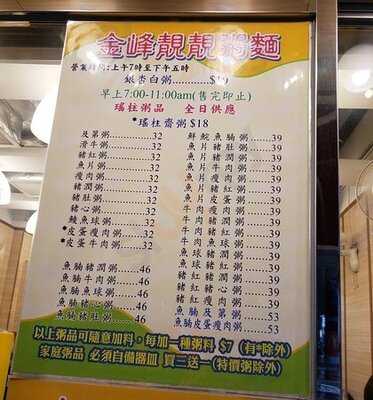 金峰靚靚粥麵
營業時間:上午7時至下午五時
銀杏白粥............$10
早上7:00-11:00am(售完即止)
瑤柱粥品 全日供應
*瑤柱齋粥$18
及第粥............32
滑牛粥............32
豬紅粥............32
魚片粥............32
瘦肉粥............32
豬潤粥............32
豬肚粥............32
豬心粥............32
鯪魚球粥............32
*皮蛋瘦肉粥............32
*皮蛋牛肉粥............32
魚腩豬潤粥............46
魚腩牛肉粥............46
魚腩魚球粥............46
魚腩豬心粥............46
魚腩豬肚粥............46
鮮鯇魚腩粥............39
魚片豬肚粥............39
魚片豬潤粥............39
魚片瘦肉粥............39
魚片豬紅粥............39
魚片皮蛋粥............39
牛肉瘦肉粥............39
牛肉豬潤粥............39
牛肉豬紅粥............39
牛肉魚球粥............39
魚球豬潤粥............39
魚球豬紅粥............39
豬紅豬潤粥............39
豬紅豬心粥............39
豬紅瘦肉粥............39
魚腩及第粥............53
魚腩皮蛋瘦肉粥............53
以上粥品可隨意加料，每加一種粥料 $7 (有*除外)
家庭粥品 必須自備器皿 買三送一(特價粥除外)